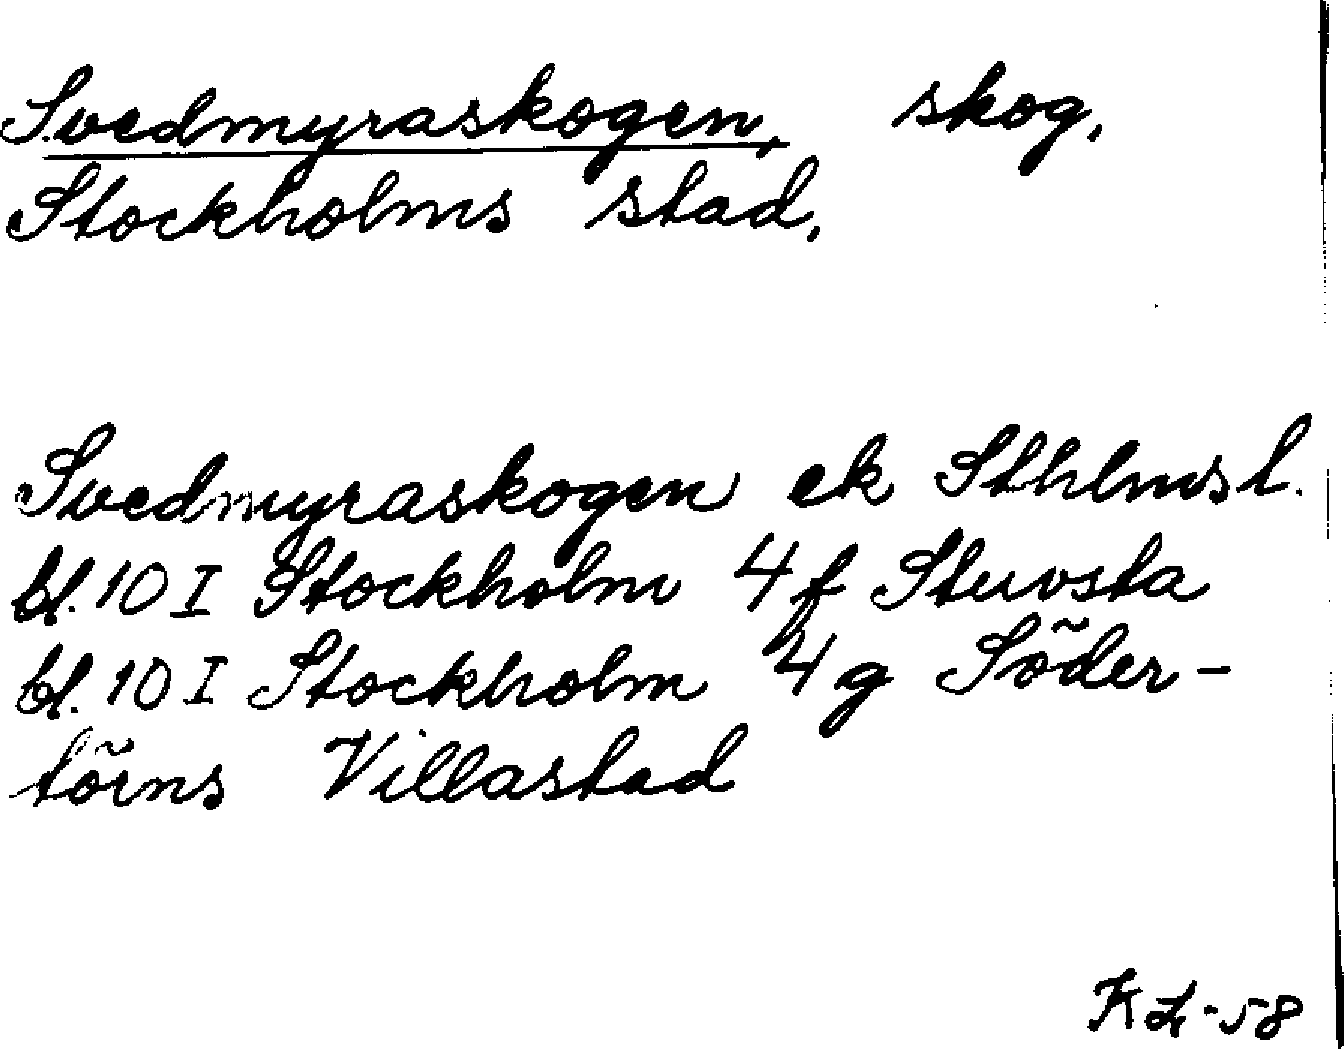 Svedmyraskogen, skog,
Stockholms stad,
Svedmyraskogen ek Sthlmsl.
bl. 10 I Stockholm 4 f Stuvsta
bl. 10 I Stockholm 4 g Söder-
törns Villastad
KL-58